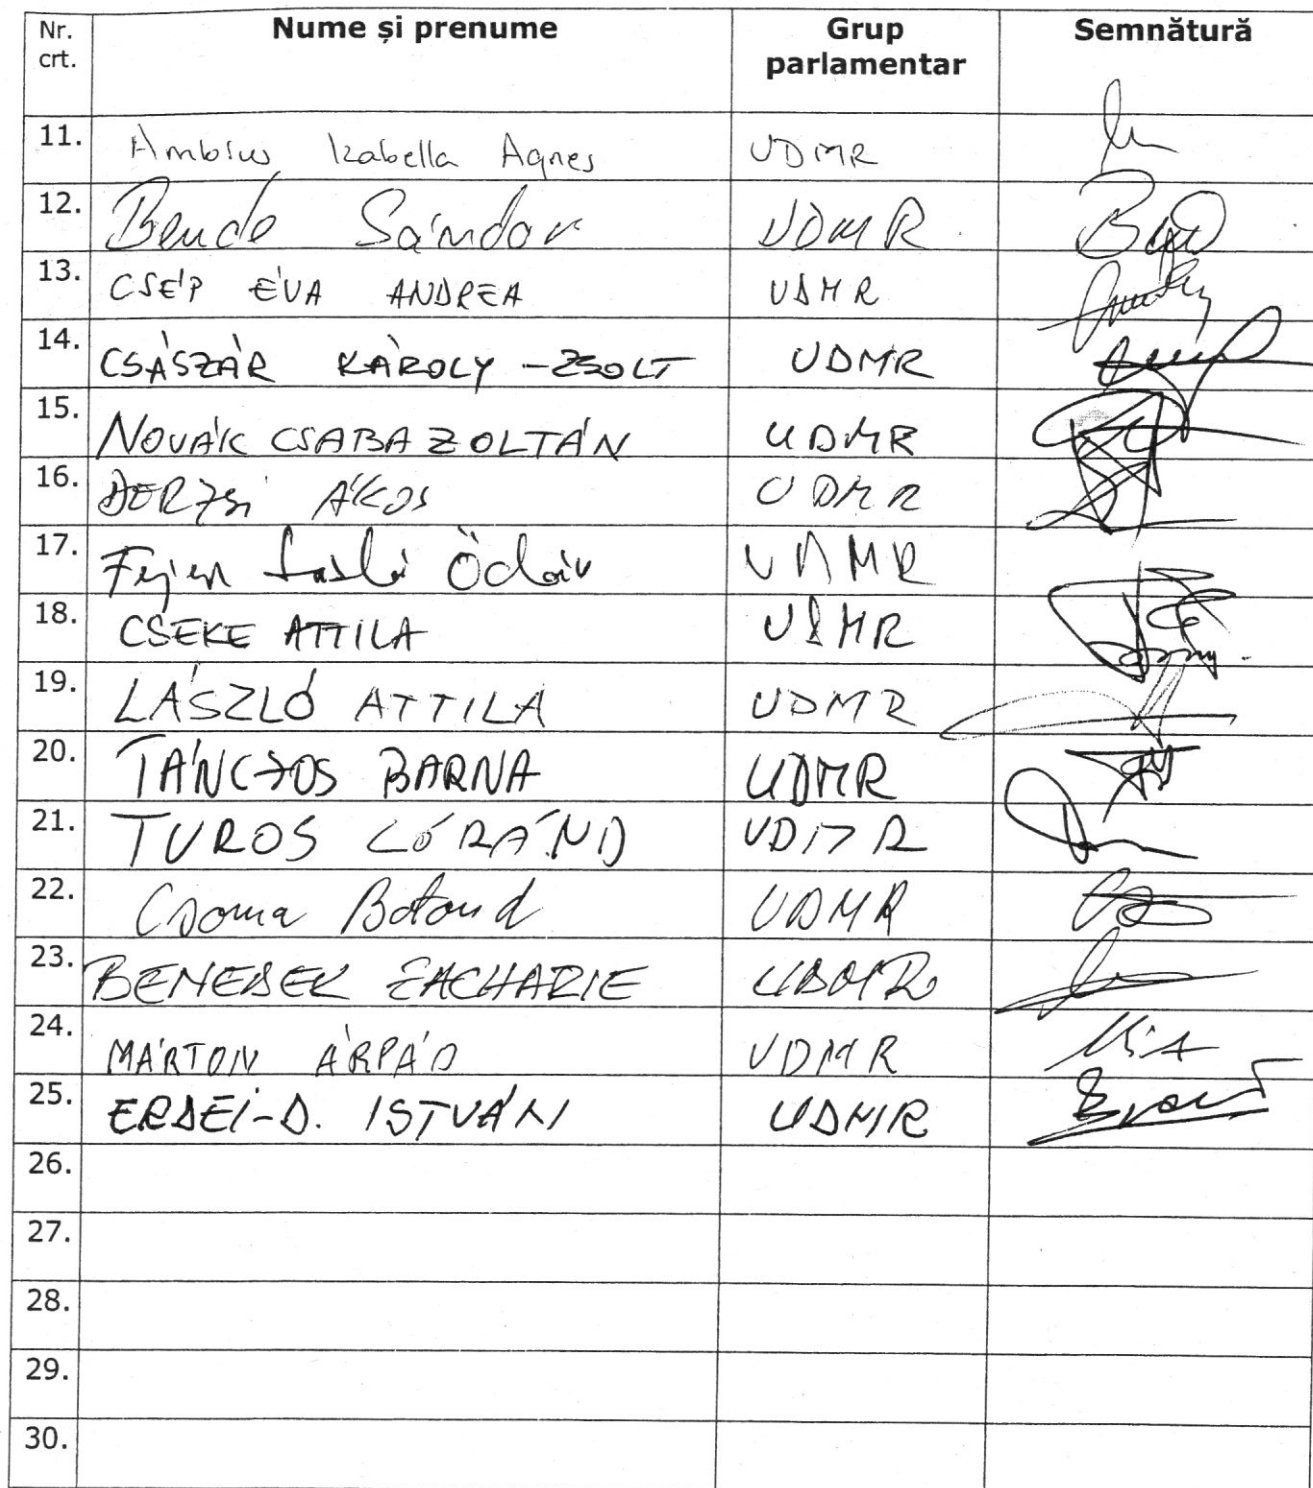 Nr. crt. Nume și prenume Grup parlamentar Semnătură
11. Ambrus Izabella Agnes UDMR
12. Bende Sándor UDMR
13. CSÉP ÉVA ANDREA UDMR
14. CSÁSZÁR KÁROLY-ZSOLT UDMR
15. NOVÁK CSABA ZOLTÁN UDMR
16. DERZSi ÁKOS UDMR
17. Fejér László Ödön UDMR
18. CSEKE ATTILA UDMR
19. LÁSZLÓ ATTILA UDMR
20. TÁNCZOS BARNA UDMR
21. TUROS LÓRÁND UDMR
22. Csoma Botond UDMR
23. BENEDEK ZACHARIE UDMR
24. MÁRTON ÁRPÁD UDMR
25. ERDEI-D. ISTVÁN UDMR
26.
27.
28.
29.
30.